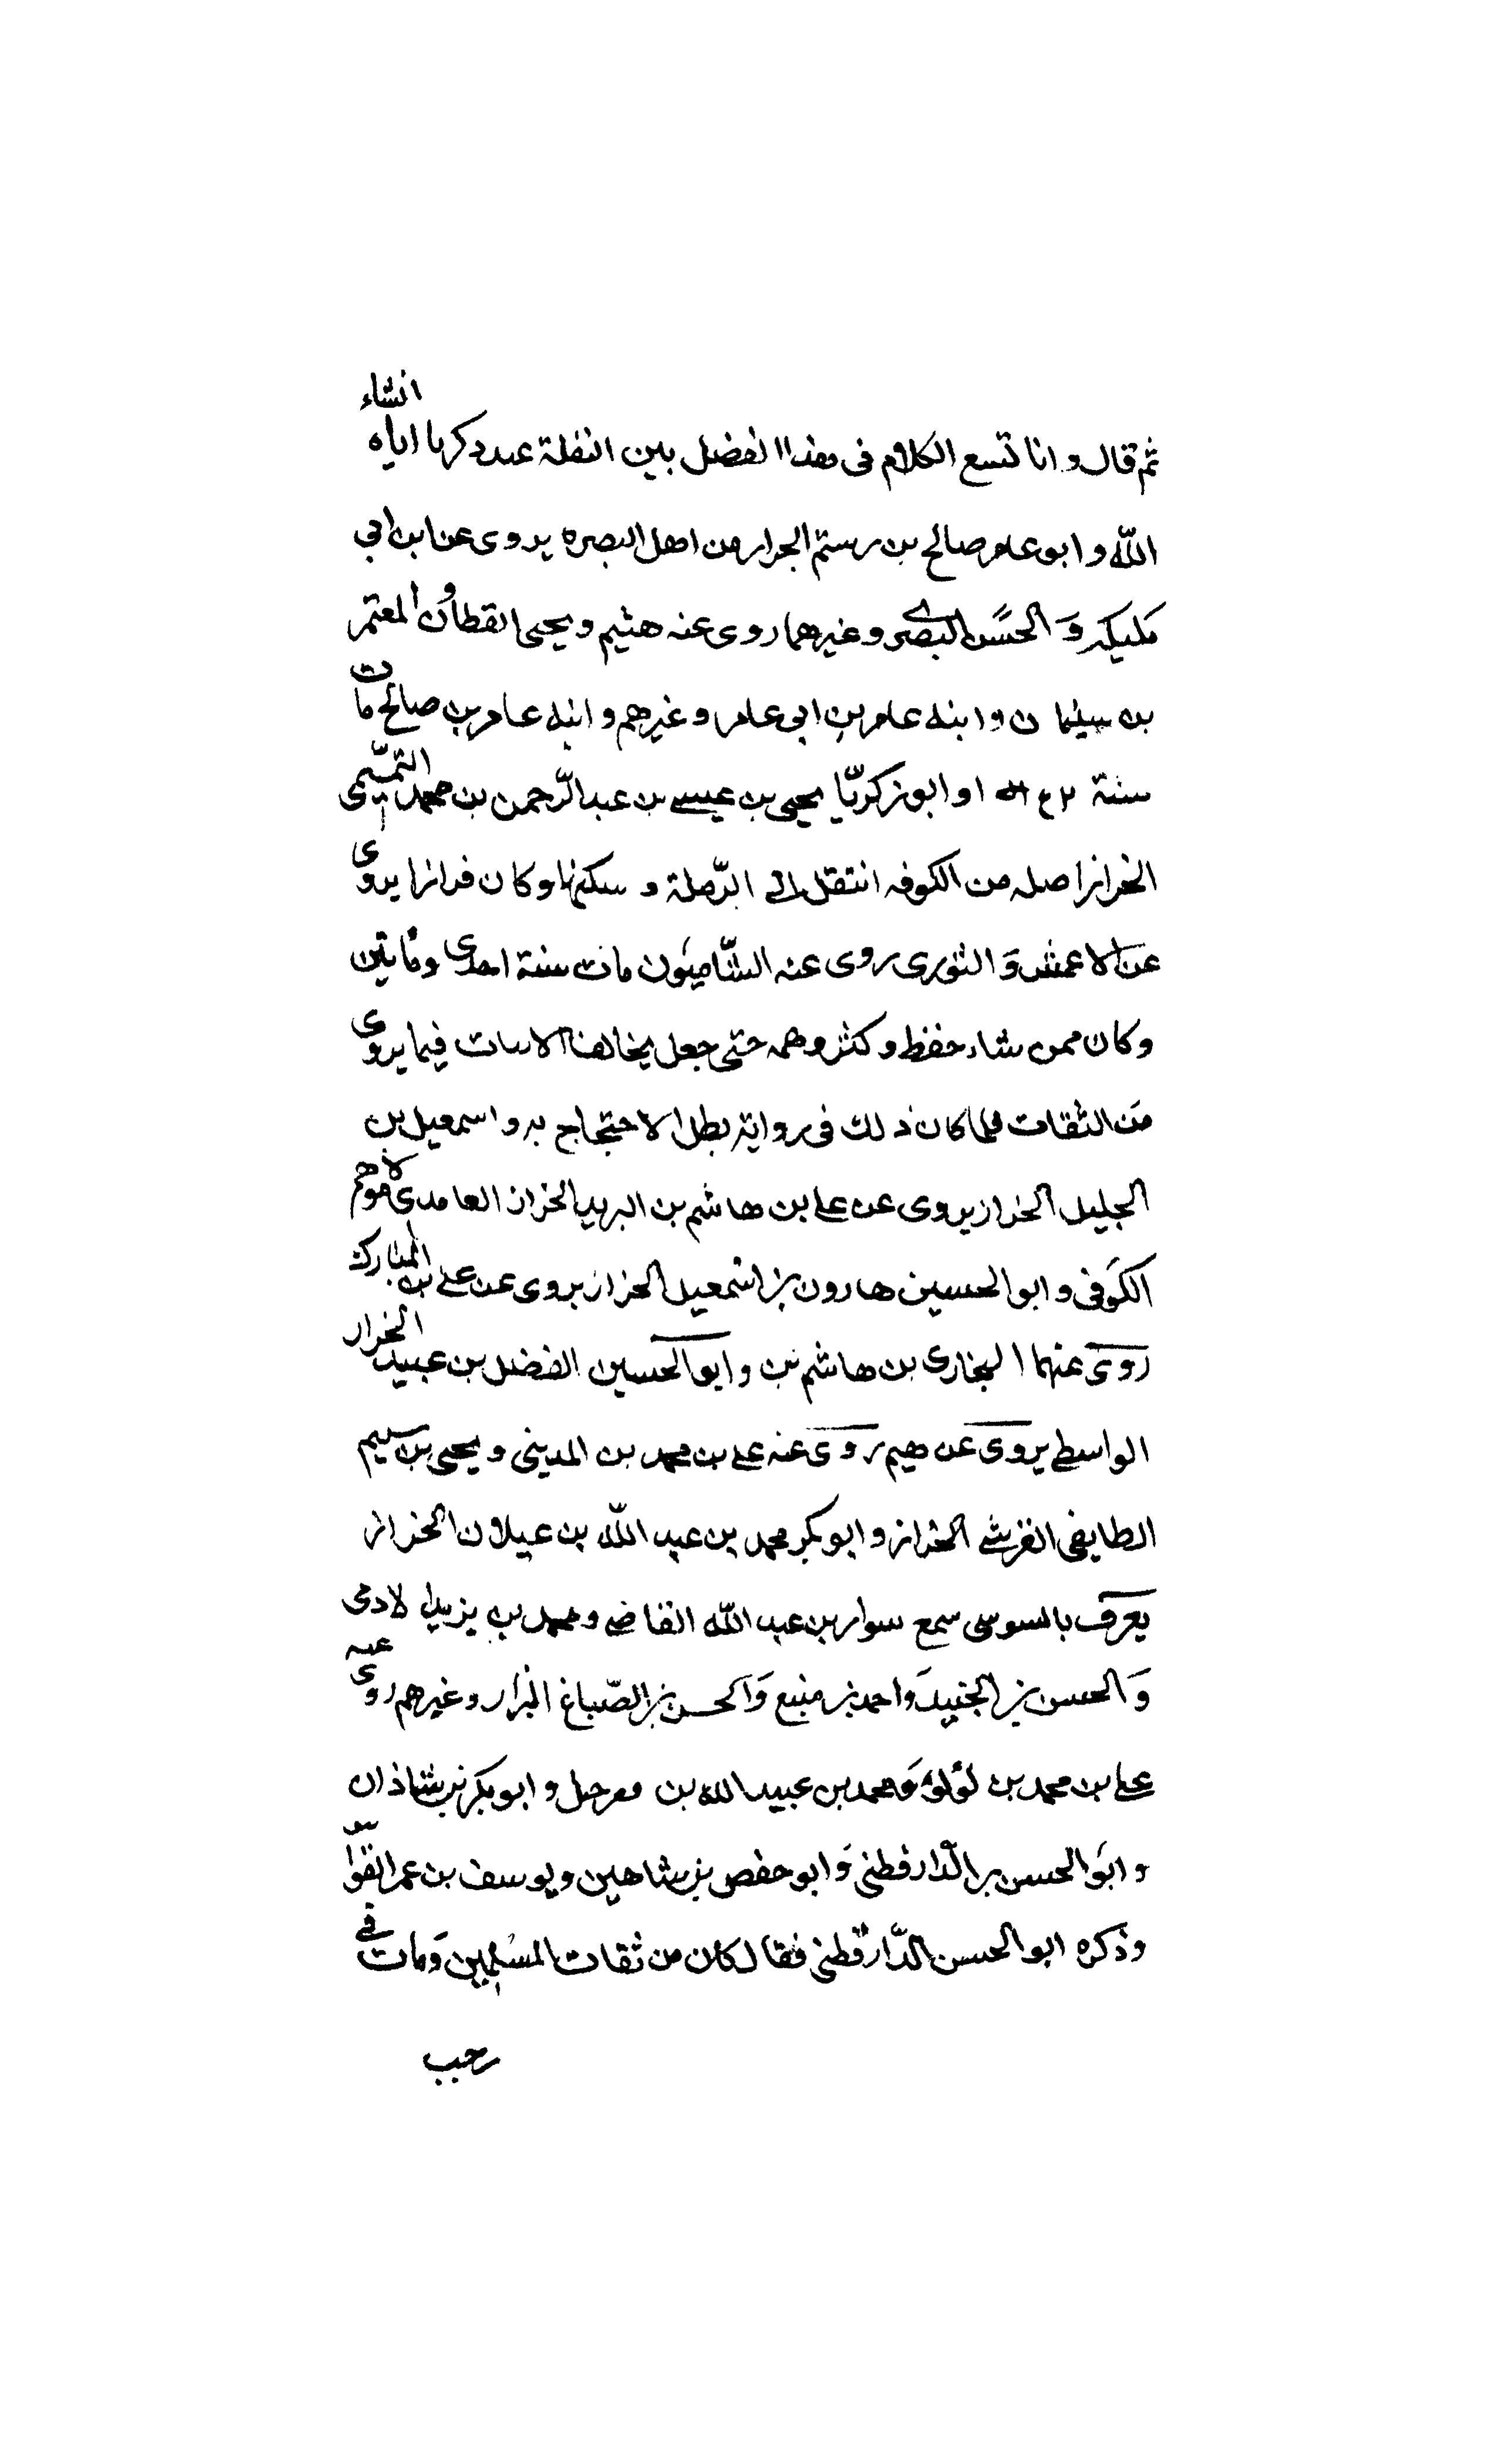 ثم قال وانا نتسع الكلام فى هذا الفضل بين النقلة عند ذكرنا اياه انشاء
الله وابو عامر صالح بن رستم الجرار من اهل البصره يروى عن ابن ابي
مليكه وَ الحسَن البصرى وغيرهما روى عنه هشيم ويحيى القطان و المعتمر
بن سليمان وابنه عامر بن ابى عامر وغيرهم وابنه عامر بن صالح مات
سنة او ابو زكريّا يحيى بن عيسى بن عبد الرّحمن بن محمد التميمى
الخراز اصله من الكوفه انتقل الى الرّملة وسكنها وكان فرازا يروى
عن الاعمش وَ الثورى روى عنه الشّاميون مات سنة احدى ومايتين
وكان ممن ساء حفظه وكثر وهمه حتى جعل يخالف الاسات فيما يروى
مَن الثقات فلما كان ذلك فى روايته بطل الاحتجاج به واسمعيل بن
الجليل الخراز يروى عن على بن هاشم بن البريد الخزاز العامدى مولاهم
الكوَفى وابو الحسين هارون بن اسمعيل الخزاز يروى عن على بن المبارك
روى عنهما البخارى بن هاشم بن وابو الحسين الفضل بن عبيد الخرار
الواسطى يروى عن هيم روى عنه على بن محمد بن المدينى ويحيى بن سليم
الطايفى القرشى الخراز وابو بكر محمد بن عبد الله بن عيلان الخزاز
يعرف بالسوسى سمع سوار بن عبد الله القاضى ومحمد بن يزيد لادمى
وَالحسن بن الجنيد وَاحمد بن منيع وَالحسن بن الصّباغ البزار وغيرهم روى عنه
على بن محمد بن لؤلؤ وَمحمد بن عبيد الله بن وابو بكر بن شاذان
وابوَ الحسن بر الدّارقطنى وَ ابو حفص بن شاهين ويوسف بن عمر القوّاس
وذكره ابو الحسن الدّارقطنى فقال كان من ثقات المسلمين وَمات فى
رحب